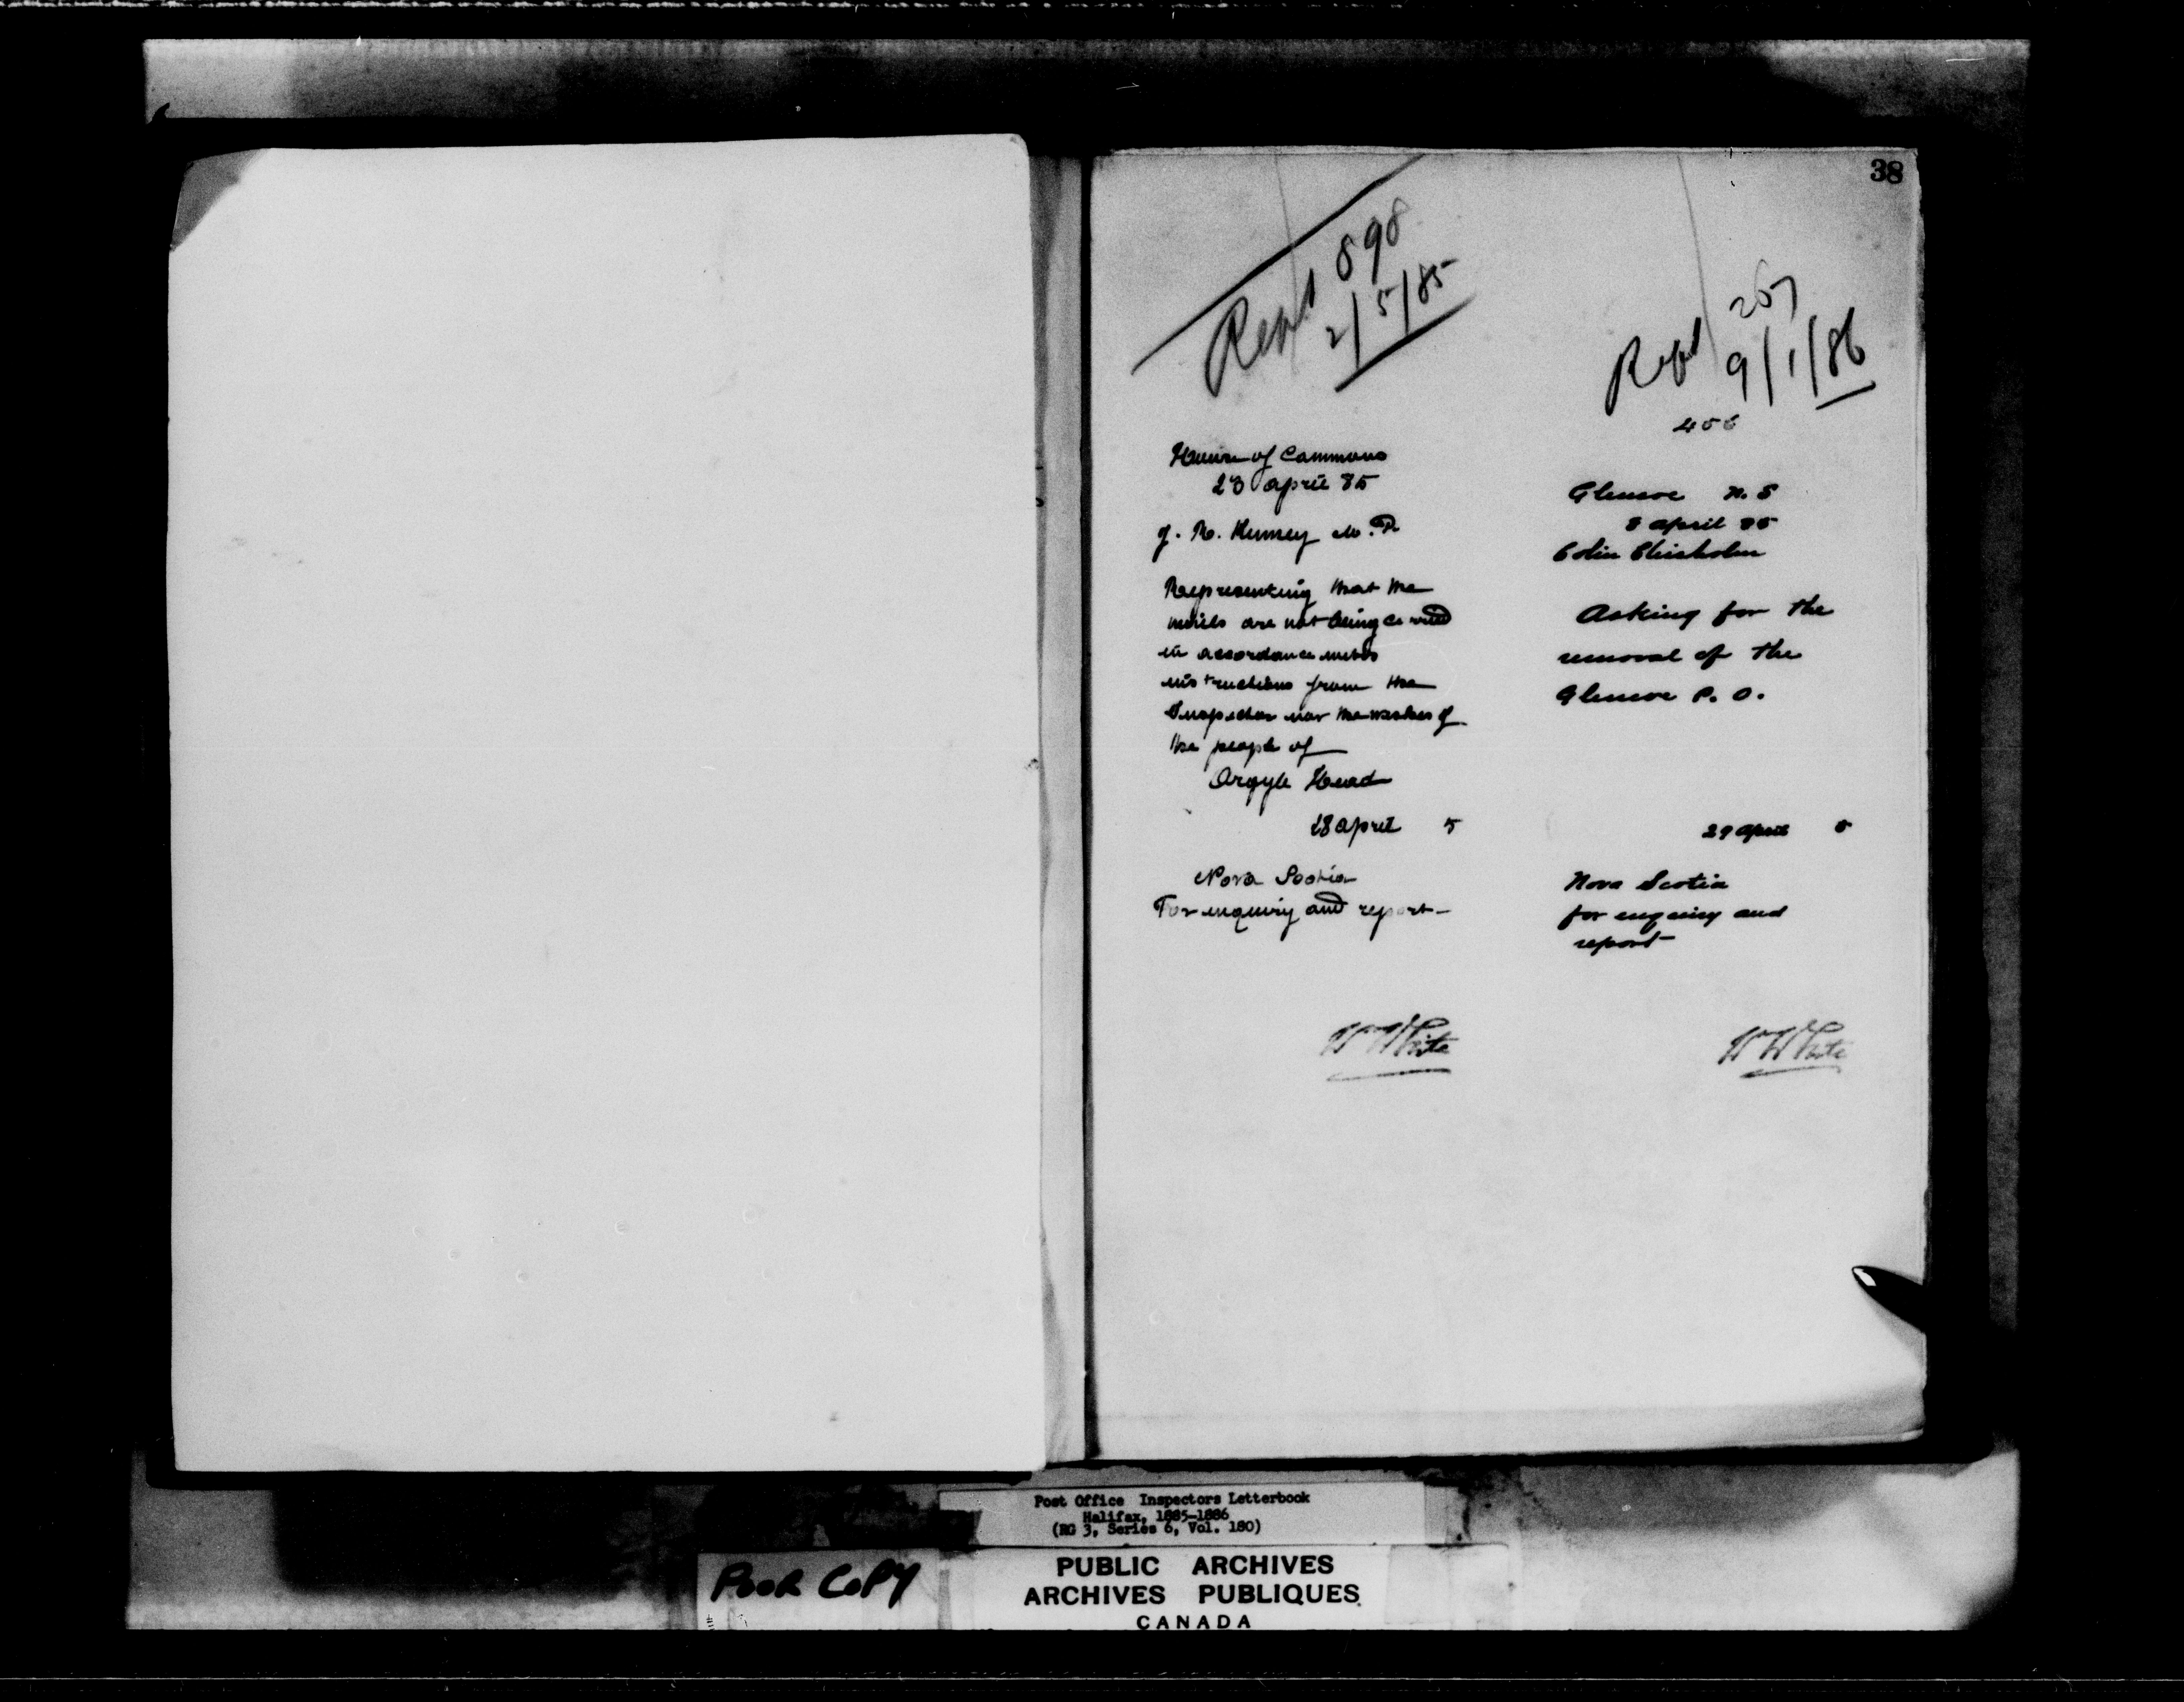 38
Rept 898
2/5/85
House of Commons
23 april 85
J. R. Kinney M.P.
Representing that the
mails are not being carried
in accordance with
instructions from the
Inspector nor the wishes of
the people of
Argyle Head
28 april 5
Nova Scotia
For inquiry and report-
W White
Rept 257
9/1/86
456
Glencoe N. S
8 april 85
Colin Chisholm
Asking for the
removal of the
Glencoe P. O.
29 April 5
Nova Scotia
for enquiry and
report-
W White
Post Office Inspectors Letterbook
Halifax, 1885-1886
(RG 3, Series 6, Vol. 180)
POOR COPY
PUBLIC ARCHIVES
ARCHIVES PUBLIQUES
CANADA